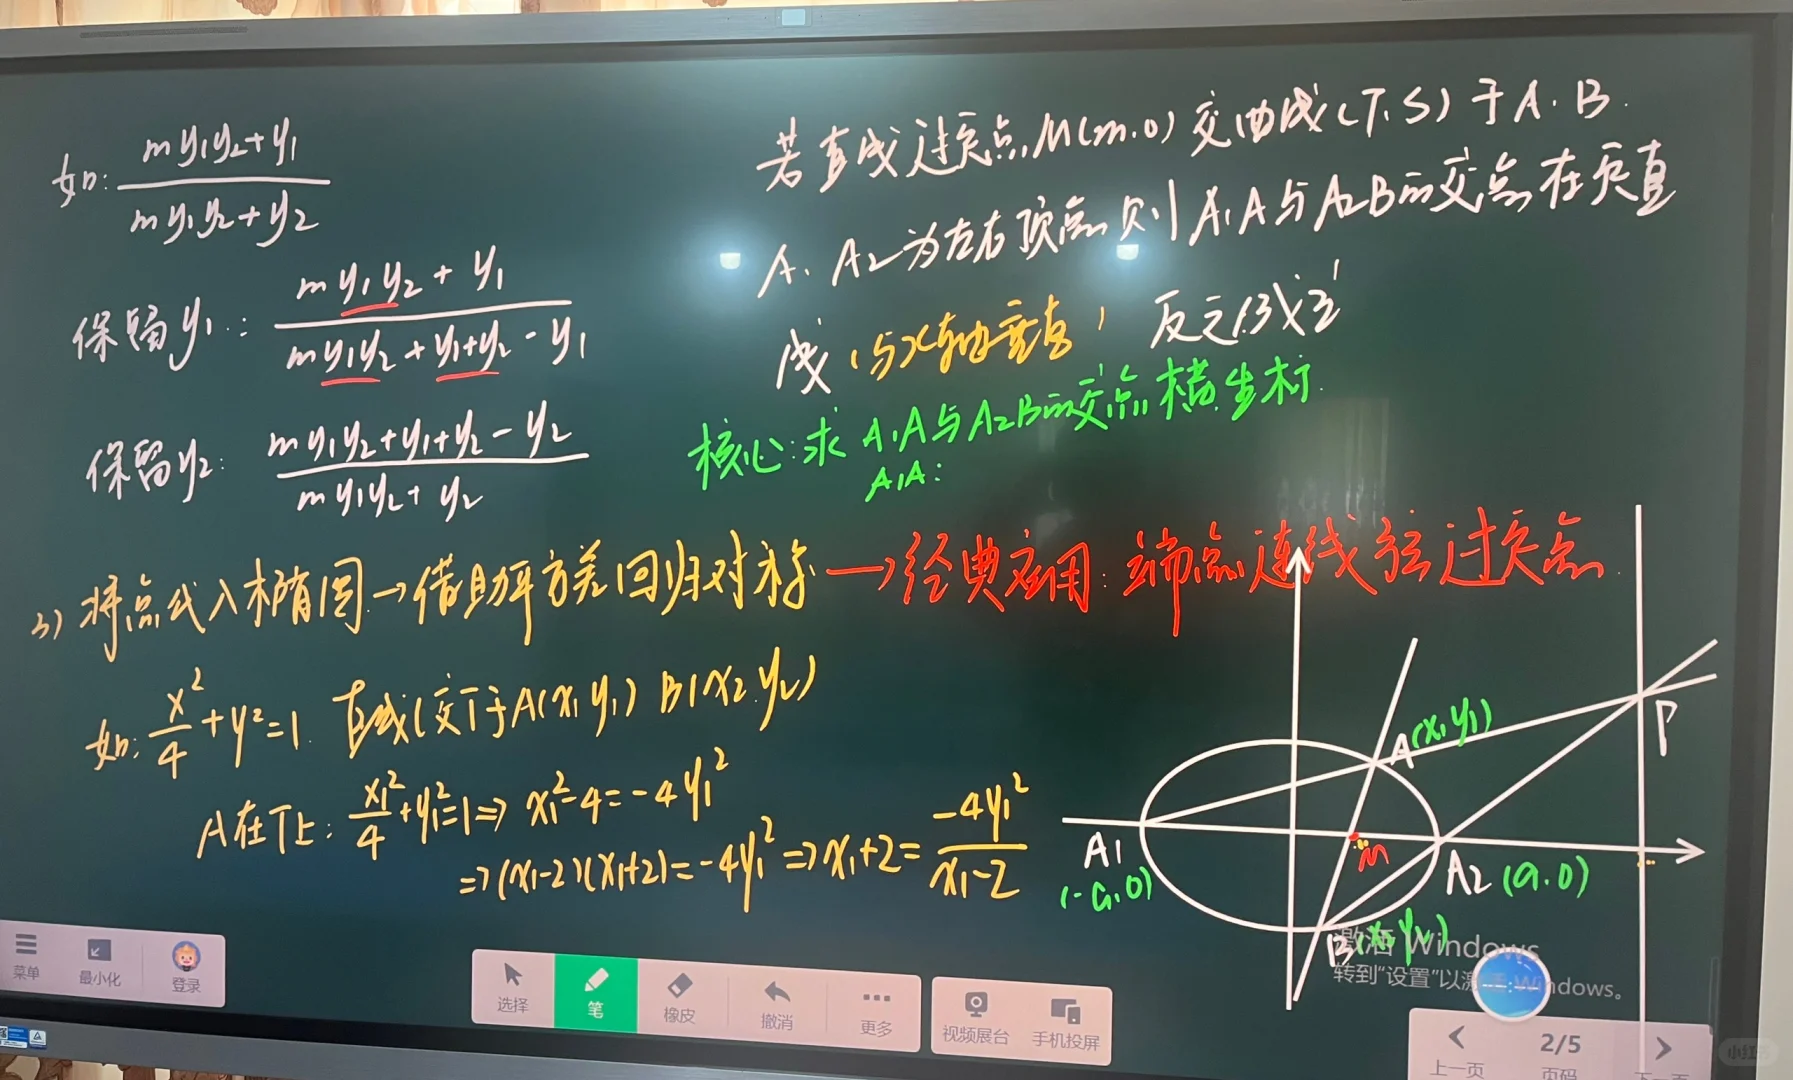 如: (my₁y₂+y₁)/(my₁y₂+y₂)
保留y₁: (my₁y₂+y₁)/(my₁y₂+y₁+y₂-y₁)
保留y₂: (my₁y₂+y₁+y₂-y₂)/(my₁y₂+y₂)
若直线过定点M(m.0)交曲线(T.S)于A.B.
A₁ A₂为左右顶点则A₁A与A₂B的交点在定直
线(与x轴垂直) 反之亦成立
核心:求A₁A与A₂B的交点横坐标.
A₁A:
3) 将点代入椭圆→借助平方差回归对称→经典应用:端点连线弦过定点.
如: x²/4+y²=1. 直线l交T于A(x₁y₁) B(x₂y₂)
A在T上: x₁²/4+y₁²=1⇒x₁²-4=-4y₁²
⇒(x₁-2)(x₁+2)=-4y₁²⇒x₁+2=-4y₁²/(x₁-2)
A(x₁y₁)
P
A1
(-a,0)
M
A2(a.0)
B(x₂y₂)
激活 Windows
菜单
最小化
登录
选择
笔
橡皮
撤消
更多
视频展台
手机投屏
2/5
上一页
页码
下一页
小红书